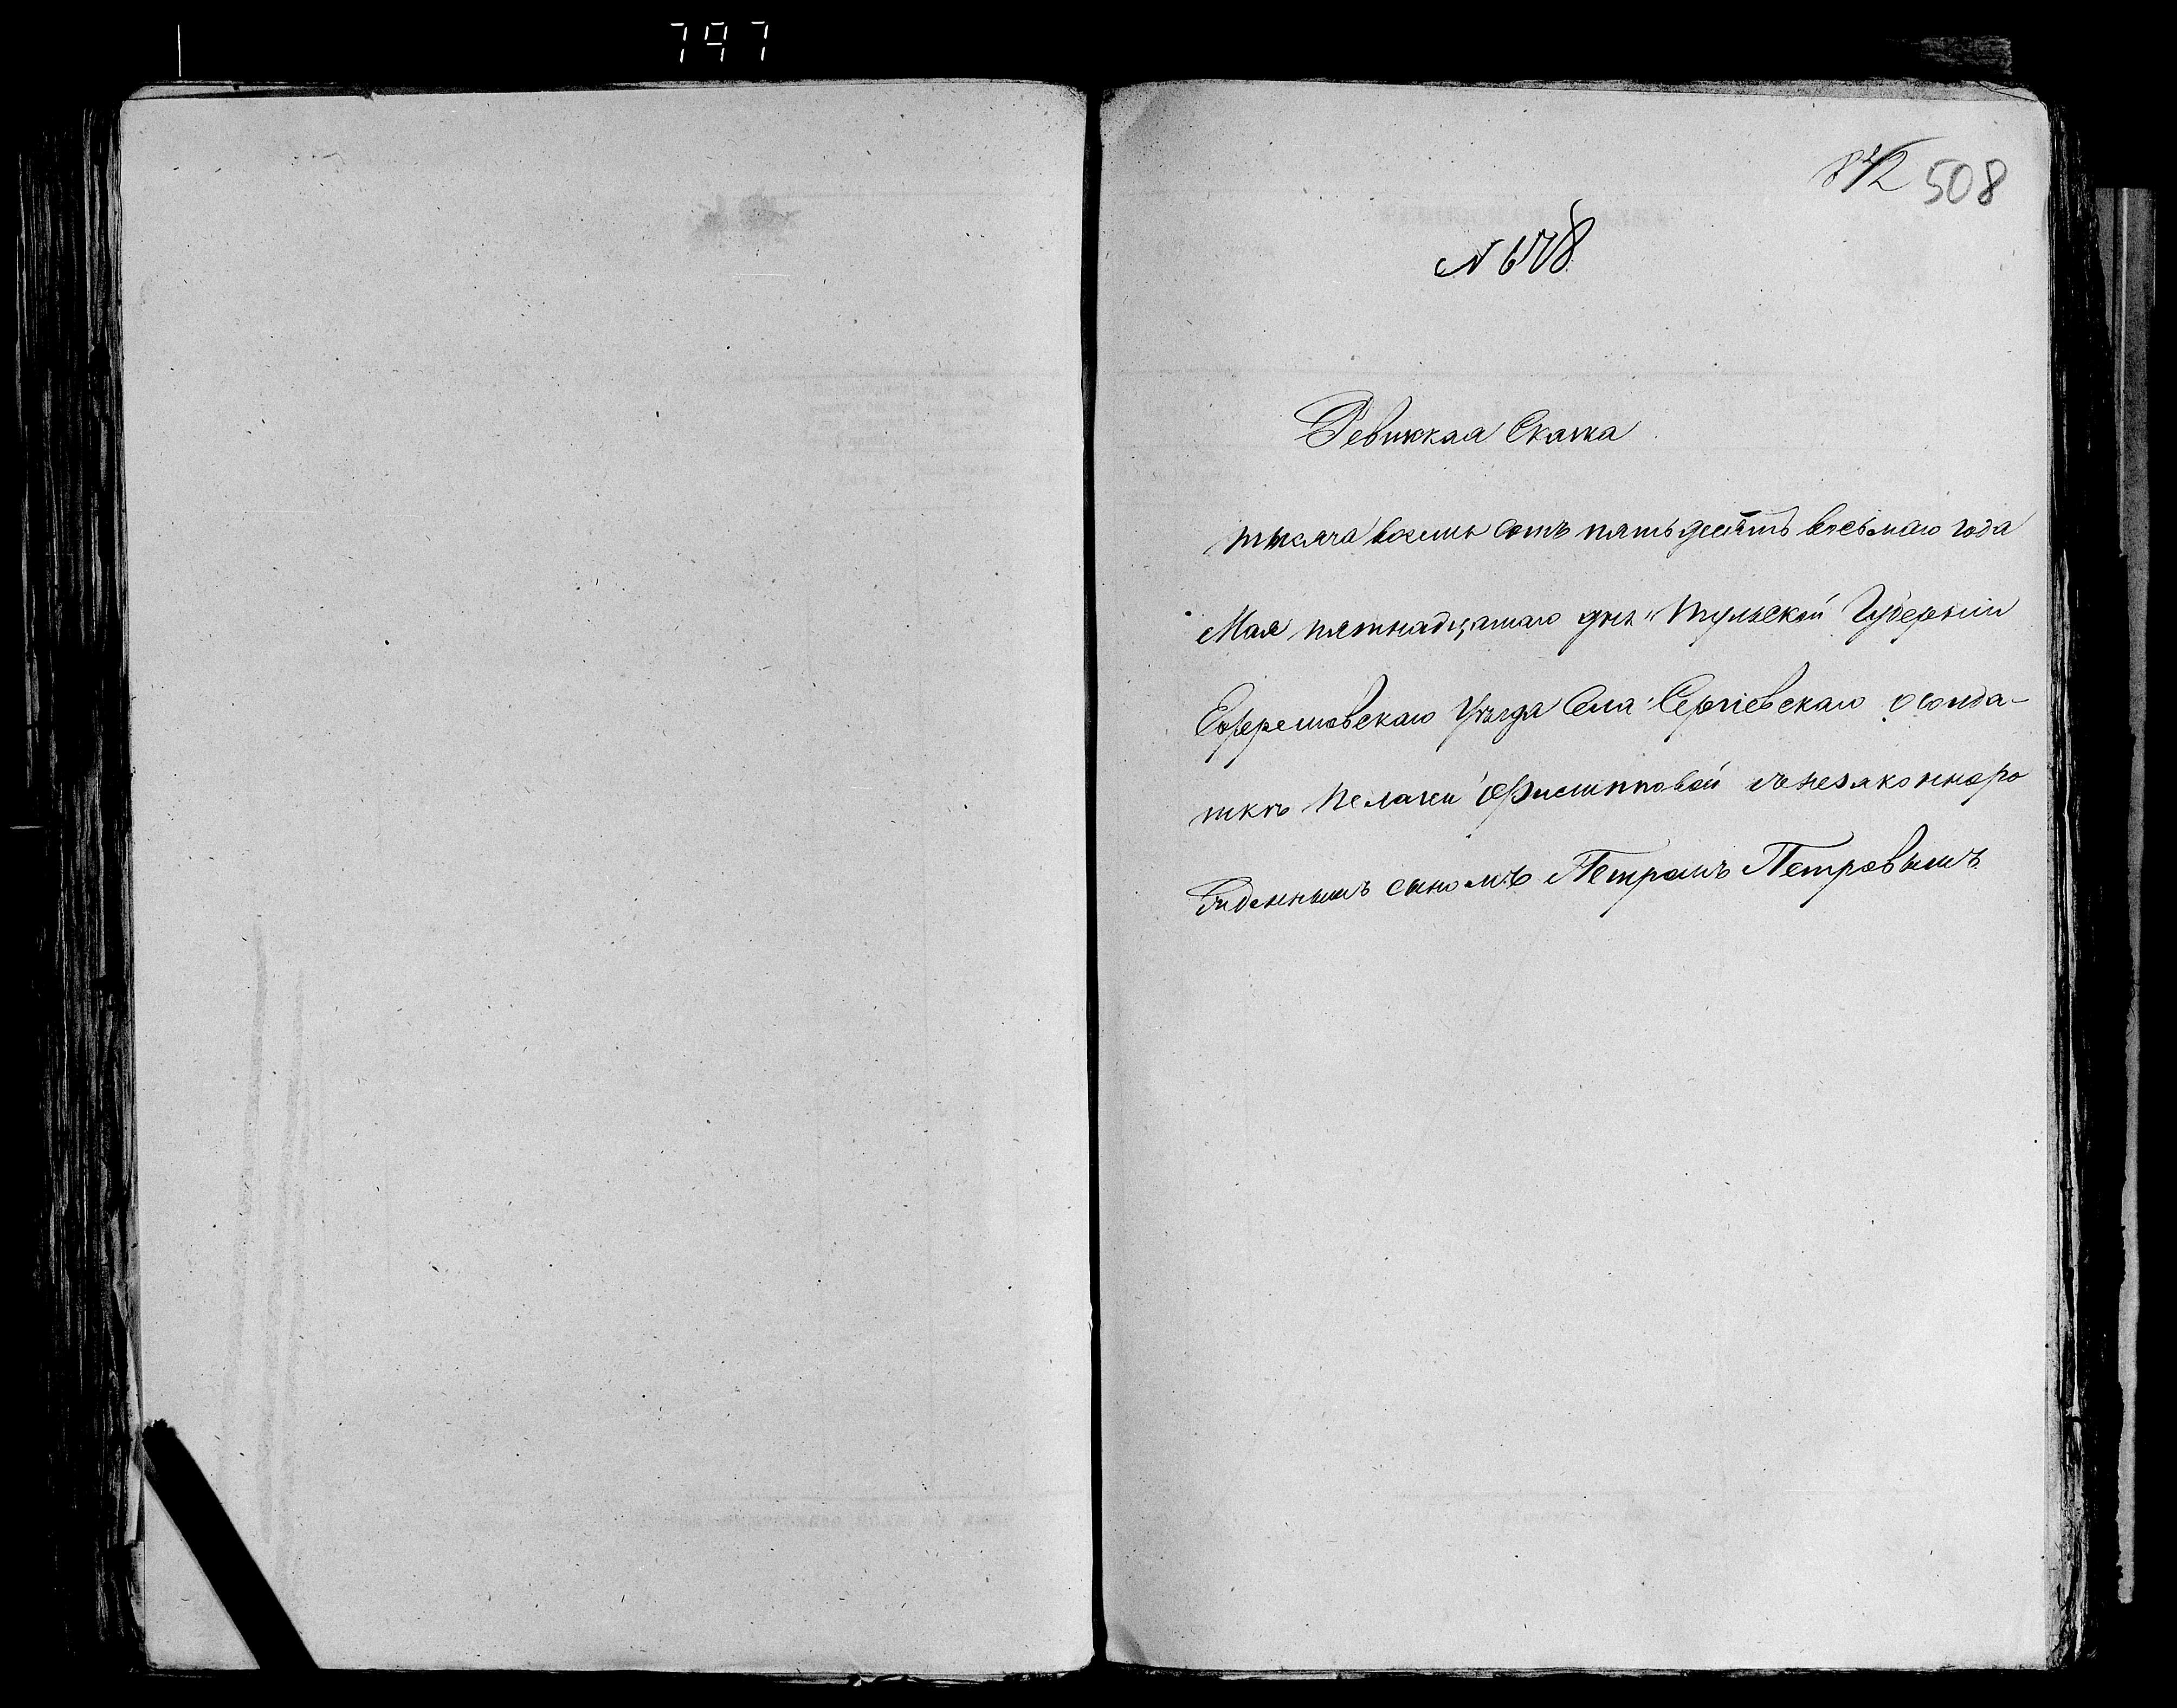 797
508
N 678
Ревизкая Сказка
тысяча восемь сотъ пятьдесятъ восьмаго года
Мая пятнадцатаго дня Тульской Губерніи
Ефремовскаго Уѣзда Села Сергіевскаго солда-
ткѣ Пелагеи Филипповой съ незаконноро
жденнымъ сыномъ Петромъ Петровымъ